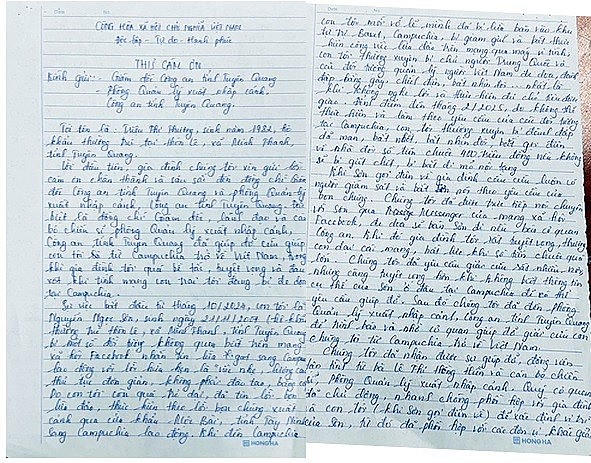 CỘNG HÒA XÃ HỘI CHỦ NGHĨA VIỆT NAM
Độc lập - Tự do - Hạnh phúc
THƯ CẢM ƠN
Kính gửi: - Giám đốc Công an tỉnh Tuyên Quang
Phòng Quản lý xuất nhập cảnh,
Công an tỉnh Tuyên Quang.
Tôi tên là: Triệu Thị Hường, sinh năm 1982, hộ
khẩu thường trú tại thôn lẻ, xã Minh Thanh,
tỉnh Tuyên Quang.
Lời đầu tiên, gia đình chúng tôi xin gửi lời
cảm ơn chân thành và sâu sắc đến đồng chí Giám
đốc Công an tỉnh Tuyên Quang và phòng Quản lý
xuất nhập cảnh, Công an tỉnh Tuyên Quang, đặc
biệt là đồng chí Giám đốc, lãnh đạo và cán
bộ chiến sĩ phòng Quản lý xuất nhập cảnh,
Công an tỉnh Tuyên Quang đã giúp đỡ cứu giúp
con tôi từ Campuchia trở về Việt Nam, trong
khi gia đình tôi quá bế tắc, tuyệt vọng và đau
xót khi tính mạng con trai tôi đang bị đe dọa
tại Campuchia.
Sự việc bắt đầu từ tháng 10/2024, con tôi là
Nguyễn Ngọc Sơn, sinh ngày 2007, hộ khẩu
thường trú thôn lẻ, xã Minh Thanh, tỉnh Tuyên Quang
bị một số đối tượng không quen biết trên mạng
xã hội Facebook nhắn tin lôi kéo sang Campuchia
lao động với lời hứa hẹn là "việc nhẹ, lương cao"
thủ tục đơn giản, không phải đào tạo, bằng cấp.
Do con tôi còn quá trẻ dại, đã tin lời bọn
lừa đảo, thực hiện theo lời bọn chúng xuất
cảnh qua cửa khẩu Mộc Bài, tỉnh Tây Ninh
sang Campuchia lao động. Khi đến Campuchia
con tôi mới vỡ lẽ mình đã bị lừa bán vào khu
tự trị Bavet, Campuchia, bị giam giữ và bắt thực
hiện công việc lừa đảo trên mạng qua máy vi tính,
con tôi thường xuyên bị chủ người Trung Quốc và
các đối tượng quản lý người Việt Nam đe dọa, đánh
đập bằng gậy, chích điện, bắt nhịn đói... nhất là
khi không nghe lời và thực hiện đủ chỉ tiêu được
giao. Đỉnh điểm đến tháng 2/2025, do không thể
thực hiện và làm theo yêu cầu của các đối tượng
tại Campuchia, con tôi thường xuyên bị đánh đập
dã man, bắt nhốt, bắt nhịn đói, bắt gọi điện
về nhà đòi số tiền chuộc 400 triệu đồng nếu không
sẽ bị giết chết, bị bắt đi mổ nội tạng.
Khi Sơn gọi điện về gia đình cầu cứu luôn có
người giám sát và bắt Sơn nói theo yêu cầu của
bọn chúng. Chúng tôi đã được trực tiếp nói chuyện
với Sơn qua Messenger của mạng xã hội
Facebook, đe dọa sẽ bán Sơn đi nếu báo cơ quan
Công an. Khi đó gia đình tôi rất tuyệt vọng, thương
con đau cái mạng, bất lực khi số tiền chuộc quá
lớn. Chúng tôi đã yêu cầu giúp của rất nhiều nơi
nhưng càng tuyệt vọng hơn khi không biết thông tin
cụ thể của Sơn ở đâu tại Campuchia để có thể
yêu cầu giúp đỡ. Sau đó chúng tôi đã đến phòng
Quản lý xuất nhập cảnh, Công an tỉnh Tuyên Quang
để trình báo và nhờ cơ quan giúp đỡ giải cứu con
chúng tôi từ Campuchia trở về Việt Nam.
Chúng tôi đã nhận được sự giúp đỡ, động viên
tận tình từ bà Lê Thị Hồng Thơm và cán bộ chiến
sĩ phòng Quản lý xuất nhập cảnh. Quý cơ quan
đã chủ động, nhanh chóng phối hợp với gia đình
và con tôi (khi Sơn gọi điện về) để xác định vị trí
của Sơn, từ đó đã phối hợp với các đơn vị khai giải
HONG HA
HONG HA